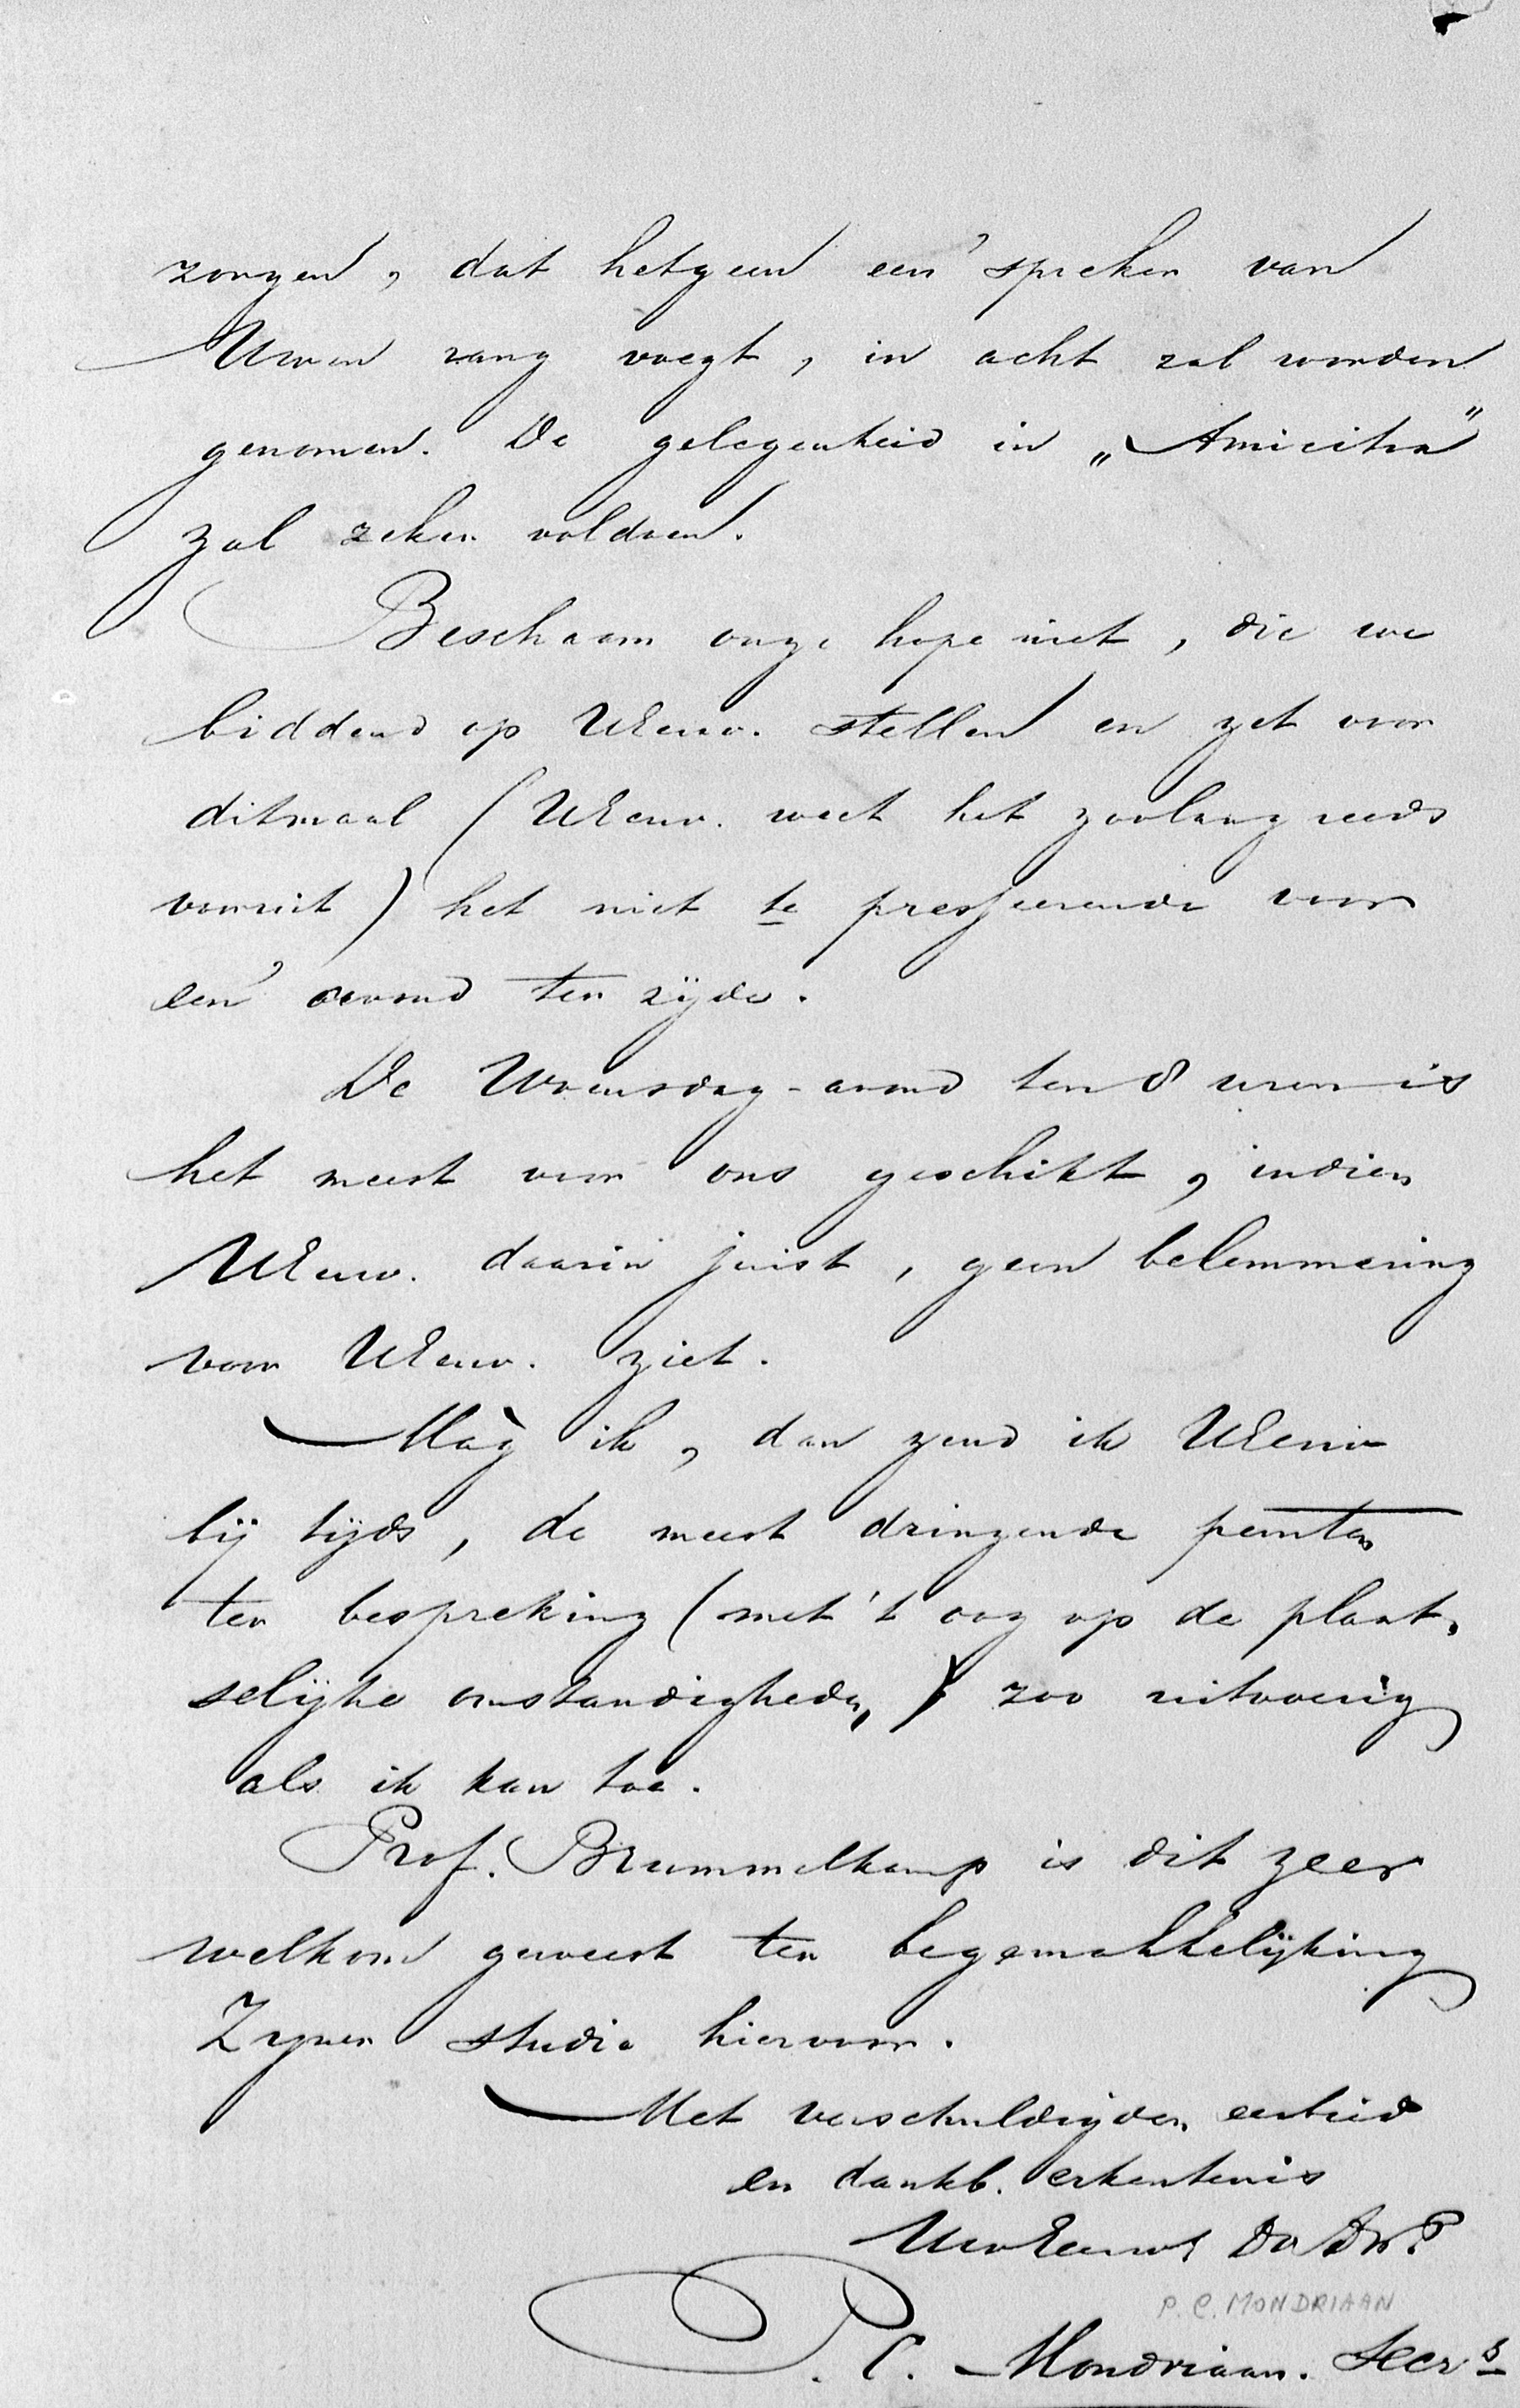 zorgen, dat hetgeen een' spreker van
Uwen rang voegt, in acht zal worden
genomen. De gelegenheid in „Amicitia"
zal zeker voldoen.
Beschaam onze hope niet, die we
biddend op UEerw. stellen en zet voor
ditmaal (UEerw. weet het zoolang reeds
vooruit) het niet te presseerende voor
een' avond ter zijde.
De Woensdag-avond ten 8 uren is
het meest voor ons geschikt, indien
UEerw. daarin juist, geen belemmering
voor UEerw. ziet.
Màg ik, dan zend ik UEerw
bij tijds, de meest dringende punten
ter bespreking (met 't oog op de plaat-
selijke omstandigheden,) zoo uitvoerig
als ik kan toe.
Prof. Brummelkamp is dit zeer
welkom geweest ter begemakkelijking
Zijner studie hiervoor.
Met verschuldigden eerbied
en dankb. erkentenis
UwEerws Do Dr.
P. C. MONDRIAAN
P. C. Mondriaan. Secrs